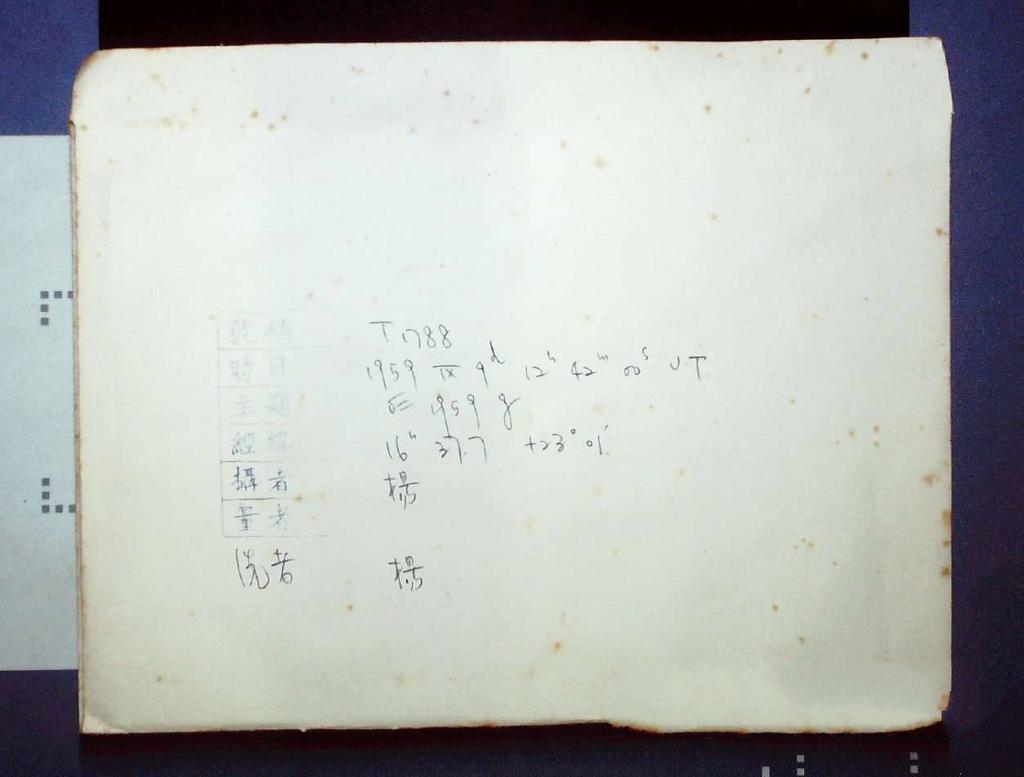 號碼 T 1788
時日 1959 IX 9ᵈ 12ʰ 42ᵐ 00ˢ U.T
主題 1959 g
經緯 16ʰ 37.7 +23° 01′
攝者 楊
量者
洗者 楊